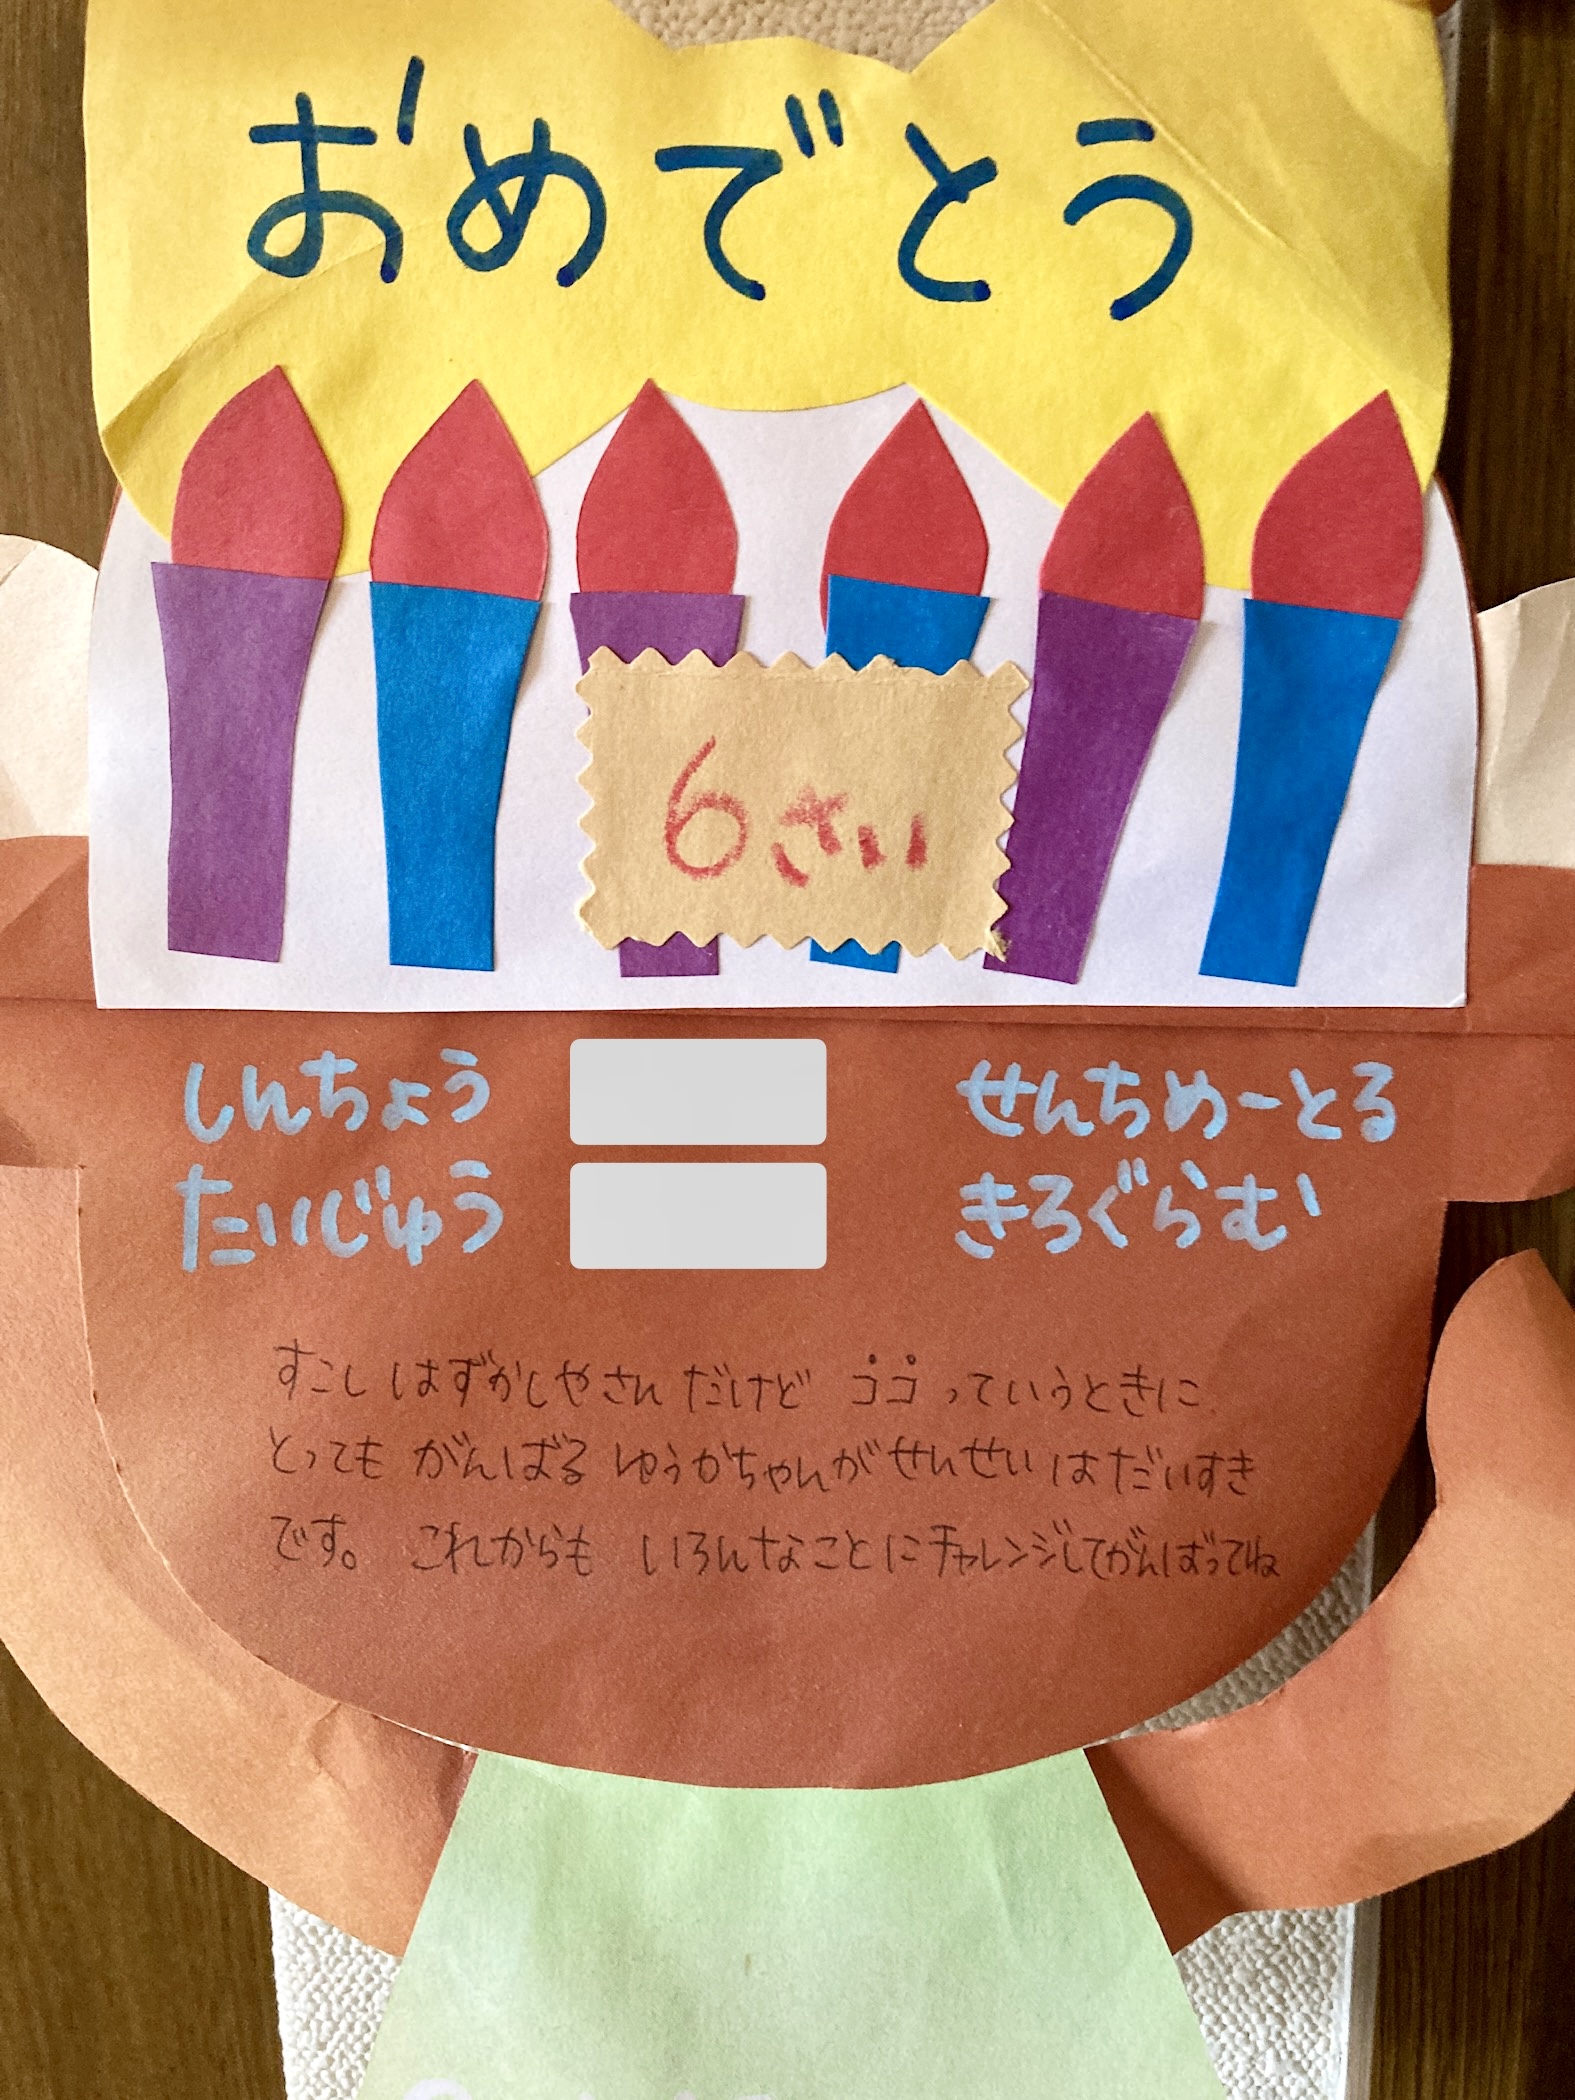 おめでとう
6さい
しんちょう せんちめーとる
たいじゅう きろぐらむ
すこし はずかしやさん だけど ココ゚っていうときに
とっても がんばる ゆうかちゃんが せんせい は だいすき
です。 これからも いろんなことにチャレンジしてがんばってね